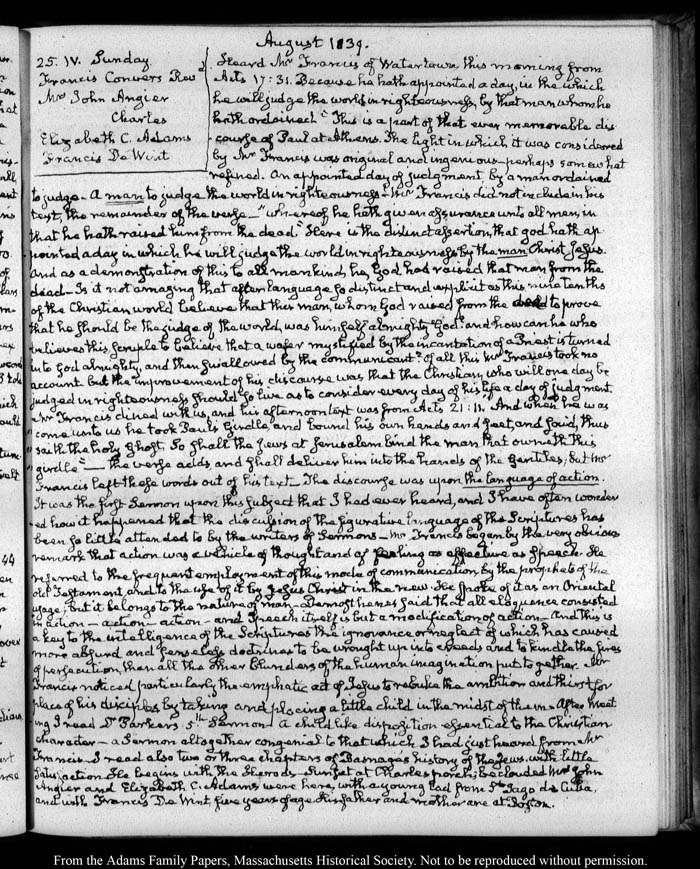 August 1839.
25. IV. Sunday
Francis Convers Rev
Mrs John Angier
Charles
Elizabeth C. Adams
Francis De Wint
Heard Mr Francis of Watertown this morning from
Acts 17:31. Because he hath appointed a day, in the which
he will judge the world in righteousness, by that man whom he
hath ordained." This is a part of that ever memorable dis
course of Paul at Athens. The light in which it was considered
by Mr Francis was original and ingenious—perhaps somewhat
refined. An appointed day of judgment, by a man ordained
to judge. A man to judge the world in righteousness—Mr Francis did not include in his
text, the remainder of the verse—"whereof he hath given assurance unto all men, in
that he hath raised him from the dead." Here is the distinct assertion, that God hath ap
pointed a day in which he will judge the world in righteousness by the man Christ Jesus.
And as a demonstration of this to all mankind, he, God, had raised that man from the
dead—Is it not amazing that after language so distinct and explicit as this nine tenths
of the Christian world believe that this man, whom God raised from the dead to prove
that he should be the judge of the world, was himself almighty God? and how can he who
believes this, scruple to believe that a wafer mystified by the incantation of a Priest is turned
into God almighty, and then swallowed by the communicant? Of all this Mr Francis took no
account but the improvement of his discourse was that the Christian, who will one day be
judged in righteousness should so live as to consider every day of his life a day of judgment.
Mr Francis dined with us, and his afternoon text was from Acts 21:11. And when he was
come unto us he took Paul's Girdle, and bound his own hands and feet, and said, thus
saith the holy Ghost. So shall the Jews at Jerusalem bind the man that owneth this
girdle"—the verse adds, and shall deliver him into the hands of the Gentiles; but Mr
Francis left these words out of his text. The discourse was upon the language of action.
It was the first Sermon upon this subject that I had ever heard, and I have often wonder
ed how it happened that the discussion of the figurative language of the Scriptures has
been so little attended to by the writers of Sermons—Mr Francis began by the very obvious
remark that action was a vehicle of thought and of feeling as effective as Speech. He
referred to the frequent employment of this mode of communication by the prophets of the
old Testament, and to the use of it by Jesus Christ in the new. He spoke of it as an Oriental
usage; but it belongs to the nature of man—Demosthenes said that all eloquence consisted
in action—action—action—and Speech itself is but a modification of action—And this is
a key to the intelligence of the Scriptures the ignorance or neglect of which has caused
more absurd and senseless doctrines to be wrought up into creeds and to kindle the fires
of persecution, than all the other blunders of the human imagination put together. Mr
Francis noticed particularly the emphatic act of Jesus to rebuke the ambition and thirst for
place of his disciples by taking and placing a little child in the midst of them. After meet
ing I read Dr Parker's 5th Sermon—A childlike disposition essential to the Christian
character—a Sermon altogether congenial to that which I had just heard from Mr
Francis—I read also two or three chapters of Basnage's history of the Jews, with little
satisfaction. He begins with the Herods—Sunset at Charles's porch; beclouded. Mrs John
Angier and Elizabeth C. Adams were here, with a young Lad from St Iago de Cuba,
and with Francis De Wint five years of age. His father and mother are at Boston.
From the Adams Family Papers, Massachusetts Historical Society. Not to be reproduced without permission.